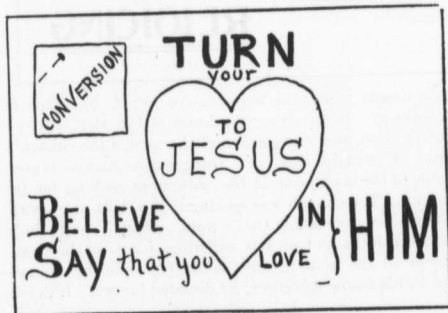 CONVERSION
TURN
your
TO
JESUS
BELIEVE IN
SAY that you LOVE
HIM